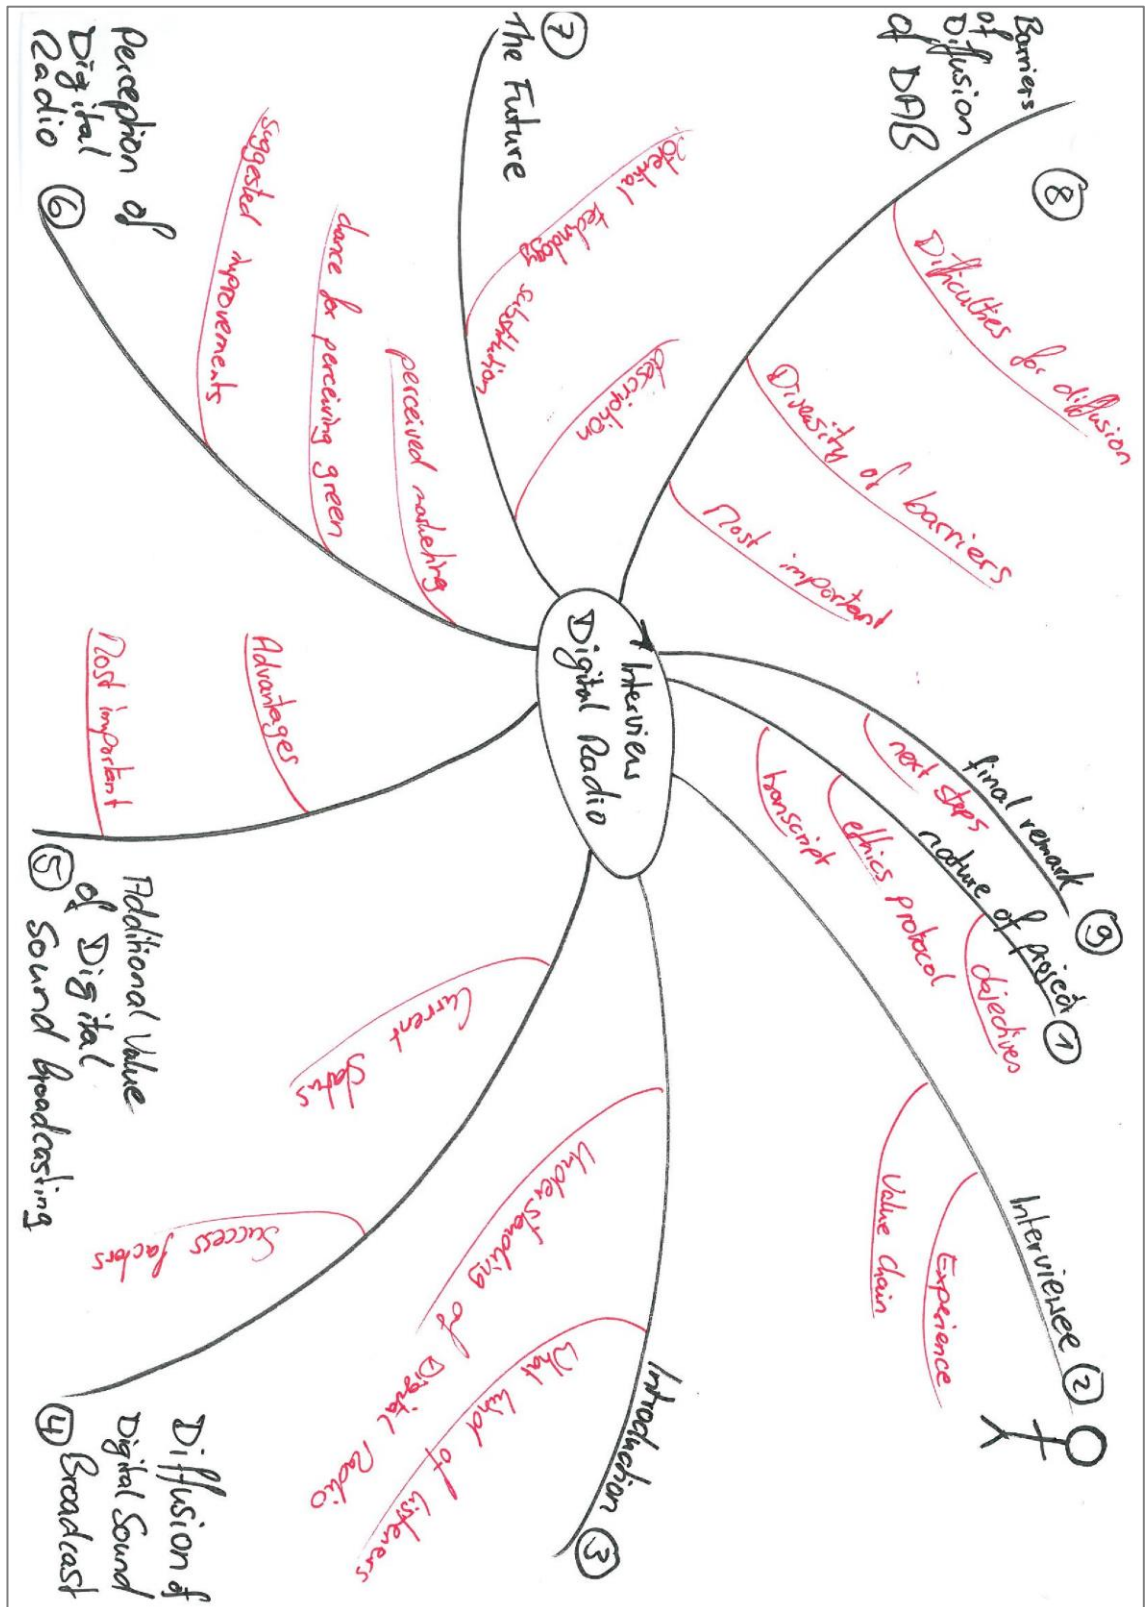 Interview
Digital Radio
nature of project ①
objectives
ethics protocol
transcript
Interviewee ②
Experience
Value Chain
Introduction ③
What kind of listeners
Understanding of Digital Radio
Diffusion of
Digital Sound
④ Broadcast
Success factors
Current
Status
Additional Value
of Digital
⑤ Sound Broadcasting
Advantages
Most important
Perception of
Digital
Radio ⑥
perceived marketing
chance for perceiving green
suggested improvements
⑦
The Future
description
technology substitution
Barriers
of
Diffusion
of DAB
⑧
Difficulties for diffusion
Diversity of barriers
Most important
final remark ⑨
next steps